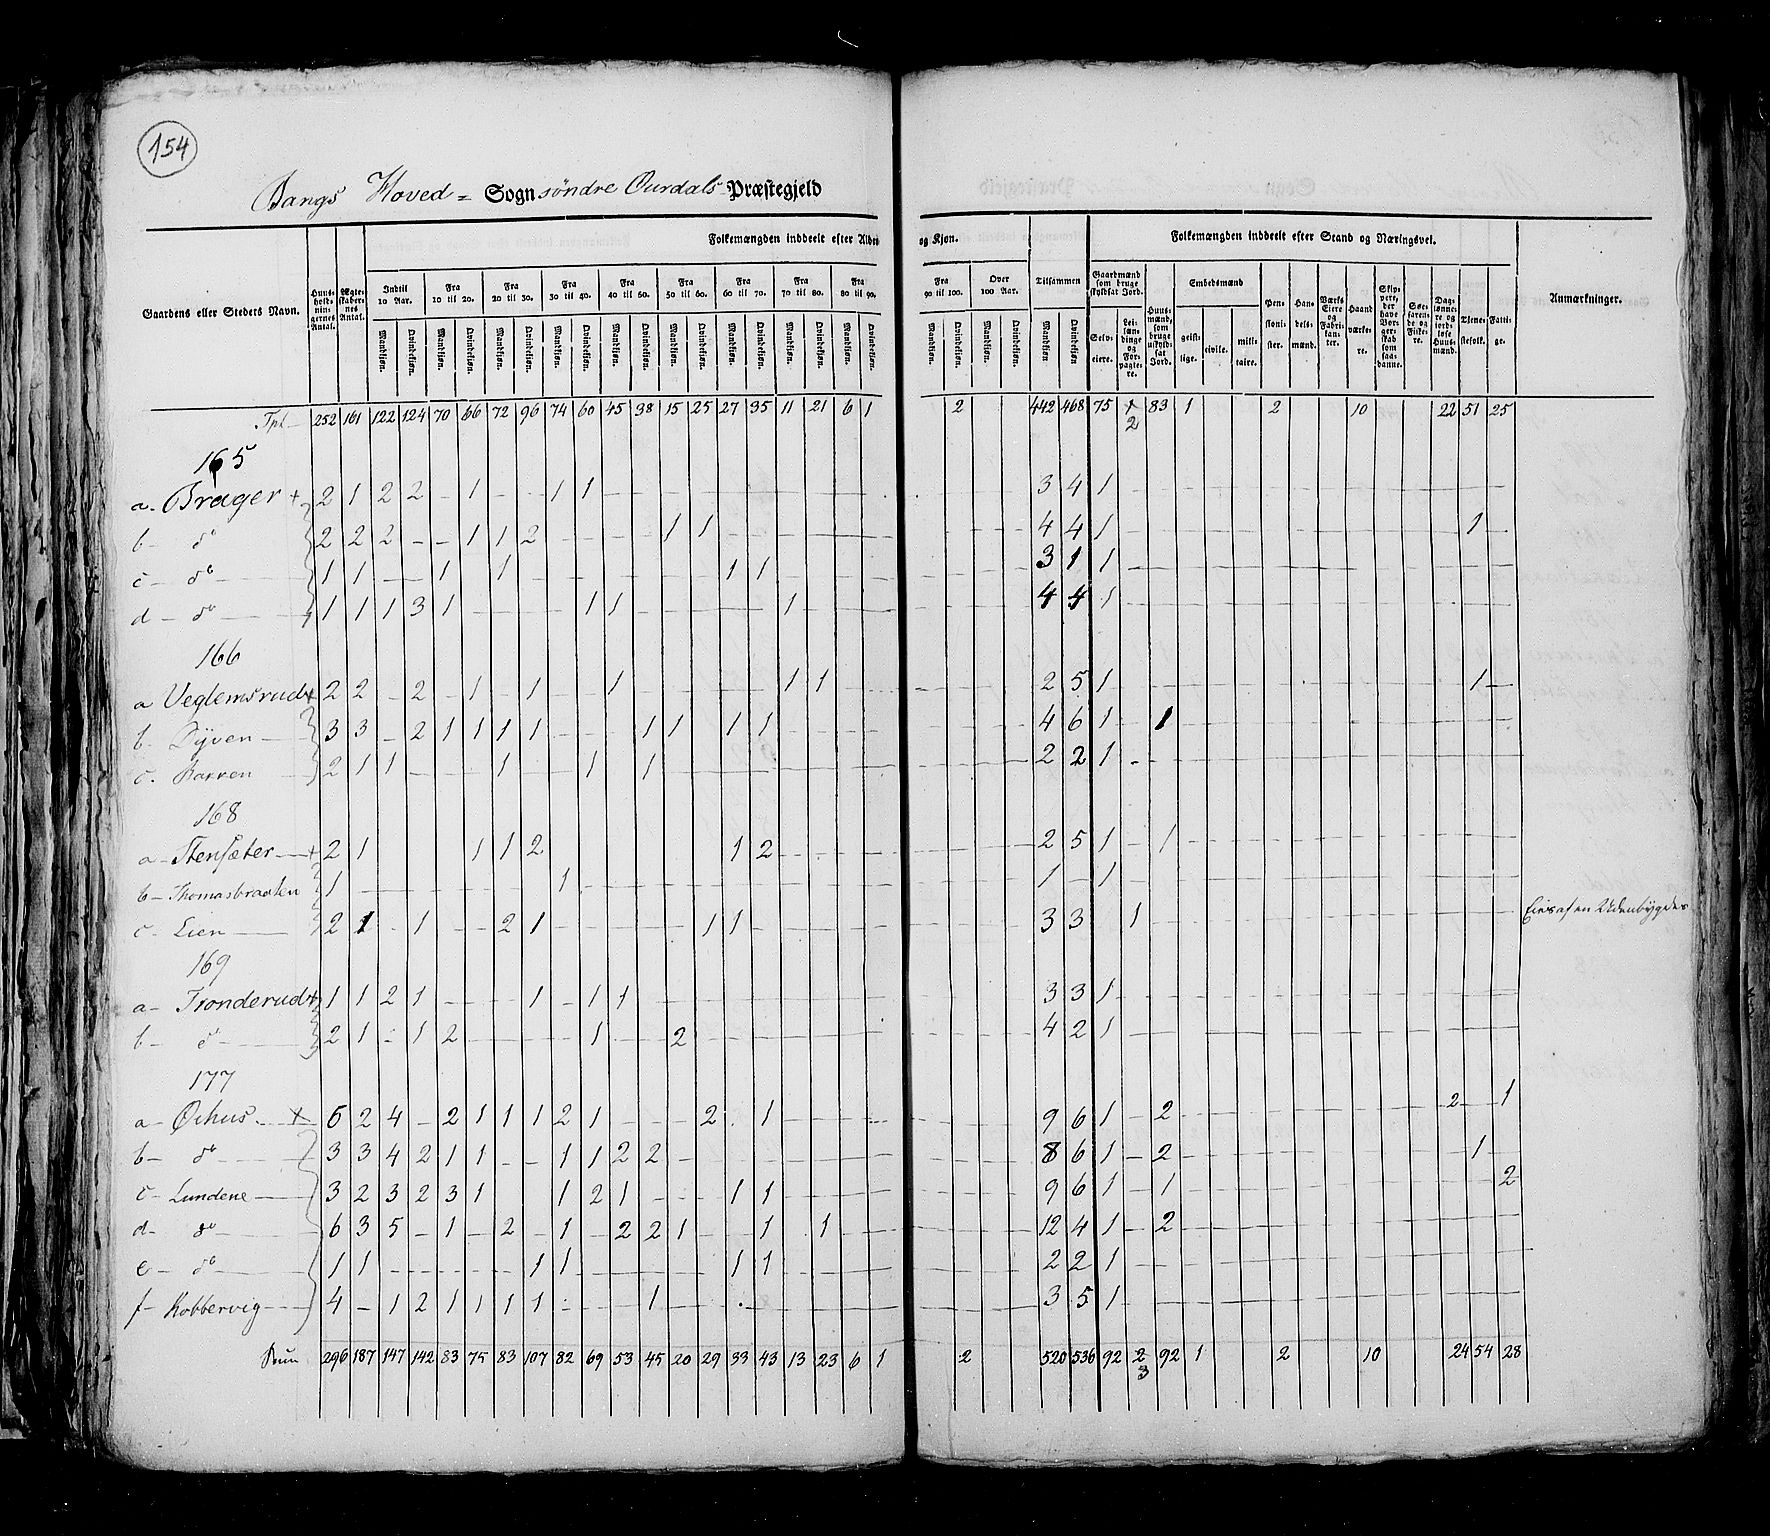 154
Bangs Hoved = Sogn søndre Ourdals Præstegjeld
Folkemængden inddeelt efter Alder og Kjøn. Folkemængden inddeelt efter Stand og Næringsvei.
Gaardens eller Steders Navn. Huusholdningernes Antal. Ægteskabernes Antal. Indtil 10 Aar. Fra 10 til 20. Fra 20 til 30. Fra 30 til 40. Fra 40 til 50. Fra 50 til 60. Fra 60 til 70. Fra 70 til 80. Fra 80 til 90. Fra 90 til 100. Over 100 Aar. Tilsammen Gaardmænd som bruge skyldsat Jord. Huusmænd, som bruge uskyldsat Jord. Embedsmænd Pensionister. Handelsmænd. Værks Eiere og Fabrikanter. Haandværkere. Skippere, der have Borgerskab som saadanne. Søefarende og Fiskere. Daglønnere og jordløse Huusmænd. Tjenestefolk. Fattige. Anmærkninger.
Mandkjøn. Qvindekjøn. Mandkjøn. Qvindekjøn. Mandkjøn. Qvindekjøn. Mandkjøn. Qvindekjøn. Mandkjøn. Qvindekjøn. Mandkjøn. Qvindekjøn. Mandkjøn. Qvindekjøn. Mandkjøn. Qvindekjøn. Mandkjøn. Qvindekjøn. Mandkjøn. Qvindekjøn. Mandkjøn. Qvindekjøn. Mandkjøn Qvindekjøn Selveiere. Leilændinge og Forpagtere. geistlige. civile. militaire.
Tpt 252 161 122 124 70 66 72 96 74 60 45 38 15 25 27 35 11 21 6 1 2 442 468 75 2 83 1 2 10 22 51 25
165
a. Brager + 2 1 2 2 - 1 - - 1 1 - 3 4 1
b - do 2 2 2 - - 1 1 2 - 1 1 - 4 4 1 - 1 -
c - do 1 1 - - 1 - 1 - 1 1 - 3 1 1
d - do 1 1 1 3 1 - 1 1 - 1 - 4 4 1
166
a Veglemsrud + 2 2 - 2 - 1 - 1 - 1 - 1 1 - 2 5 1 - 1 -
b - Dyven 3 3 - 2 1 1 1 1 - 1 1 - 1 1 - 4 6 1 - 1
c. Barren 2 1 1 - 1 - 1 - 1 - 2 2 1
168
a - Stensæter + 2 1 1 1 2 1 2 - 2 5 1 - 1
b - Thomasbraaten 1 - 1 - 1 - 1
c - Lien 2 1 - 1 - 2 1 - 1 1 - 3 3 1 Eies af en Udenbygdes
169
a - Tronderud + 1 1 2 1 - 1 - 1 1 - 3 3 1
b - do 2 1 - 1 2 - 1 - 2 - 4 2 1
177
a - Øchus + 6 2 4 - 2 1 1 1 2 1 - 2 - 1 - 9 6 1 - 2 - 2 - 1
b - do 3 3 4 2 1 1 - - 1 1 2 2 - 8 6 1 - 2 - 1
c - Lundene 3 2 3 2 3 1 1 2 1 - 1 1 - 9 6 1 - 1 - 2
d - do 6 3 5 - 1 - 2 - 1 - 2 2 1 - 1 - 1 - 12 4 1 - 2
e - do 1 1 - 1 1 - 1 1 - 2 2 1
f - Kobbervig 4 - 1 2 1 1 1 1 - 1 - 3 5 1
296 187 147 142 83 75 83 107 82 69 53 45 20 29 33 43 13 23 6 1 2 520 536 92 2 3 92 1 2 10 24 54 28